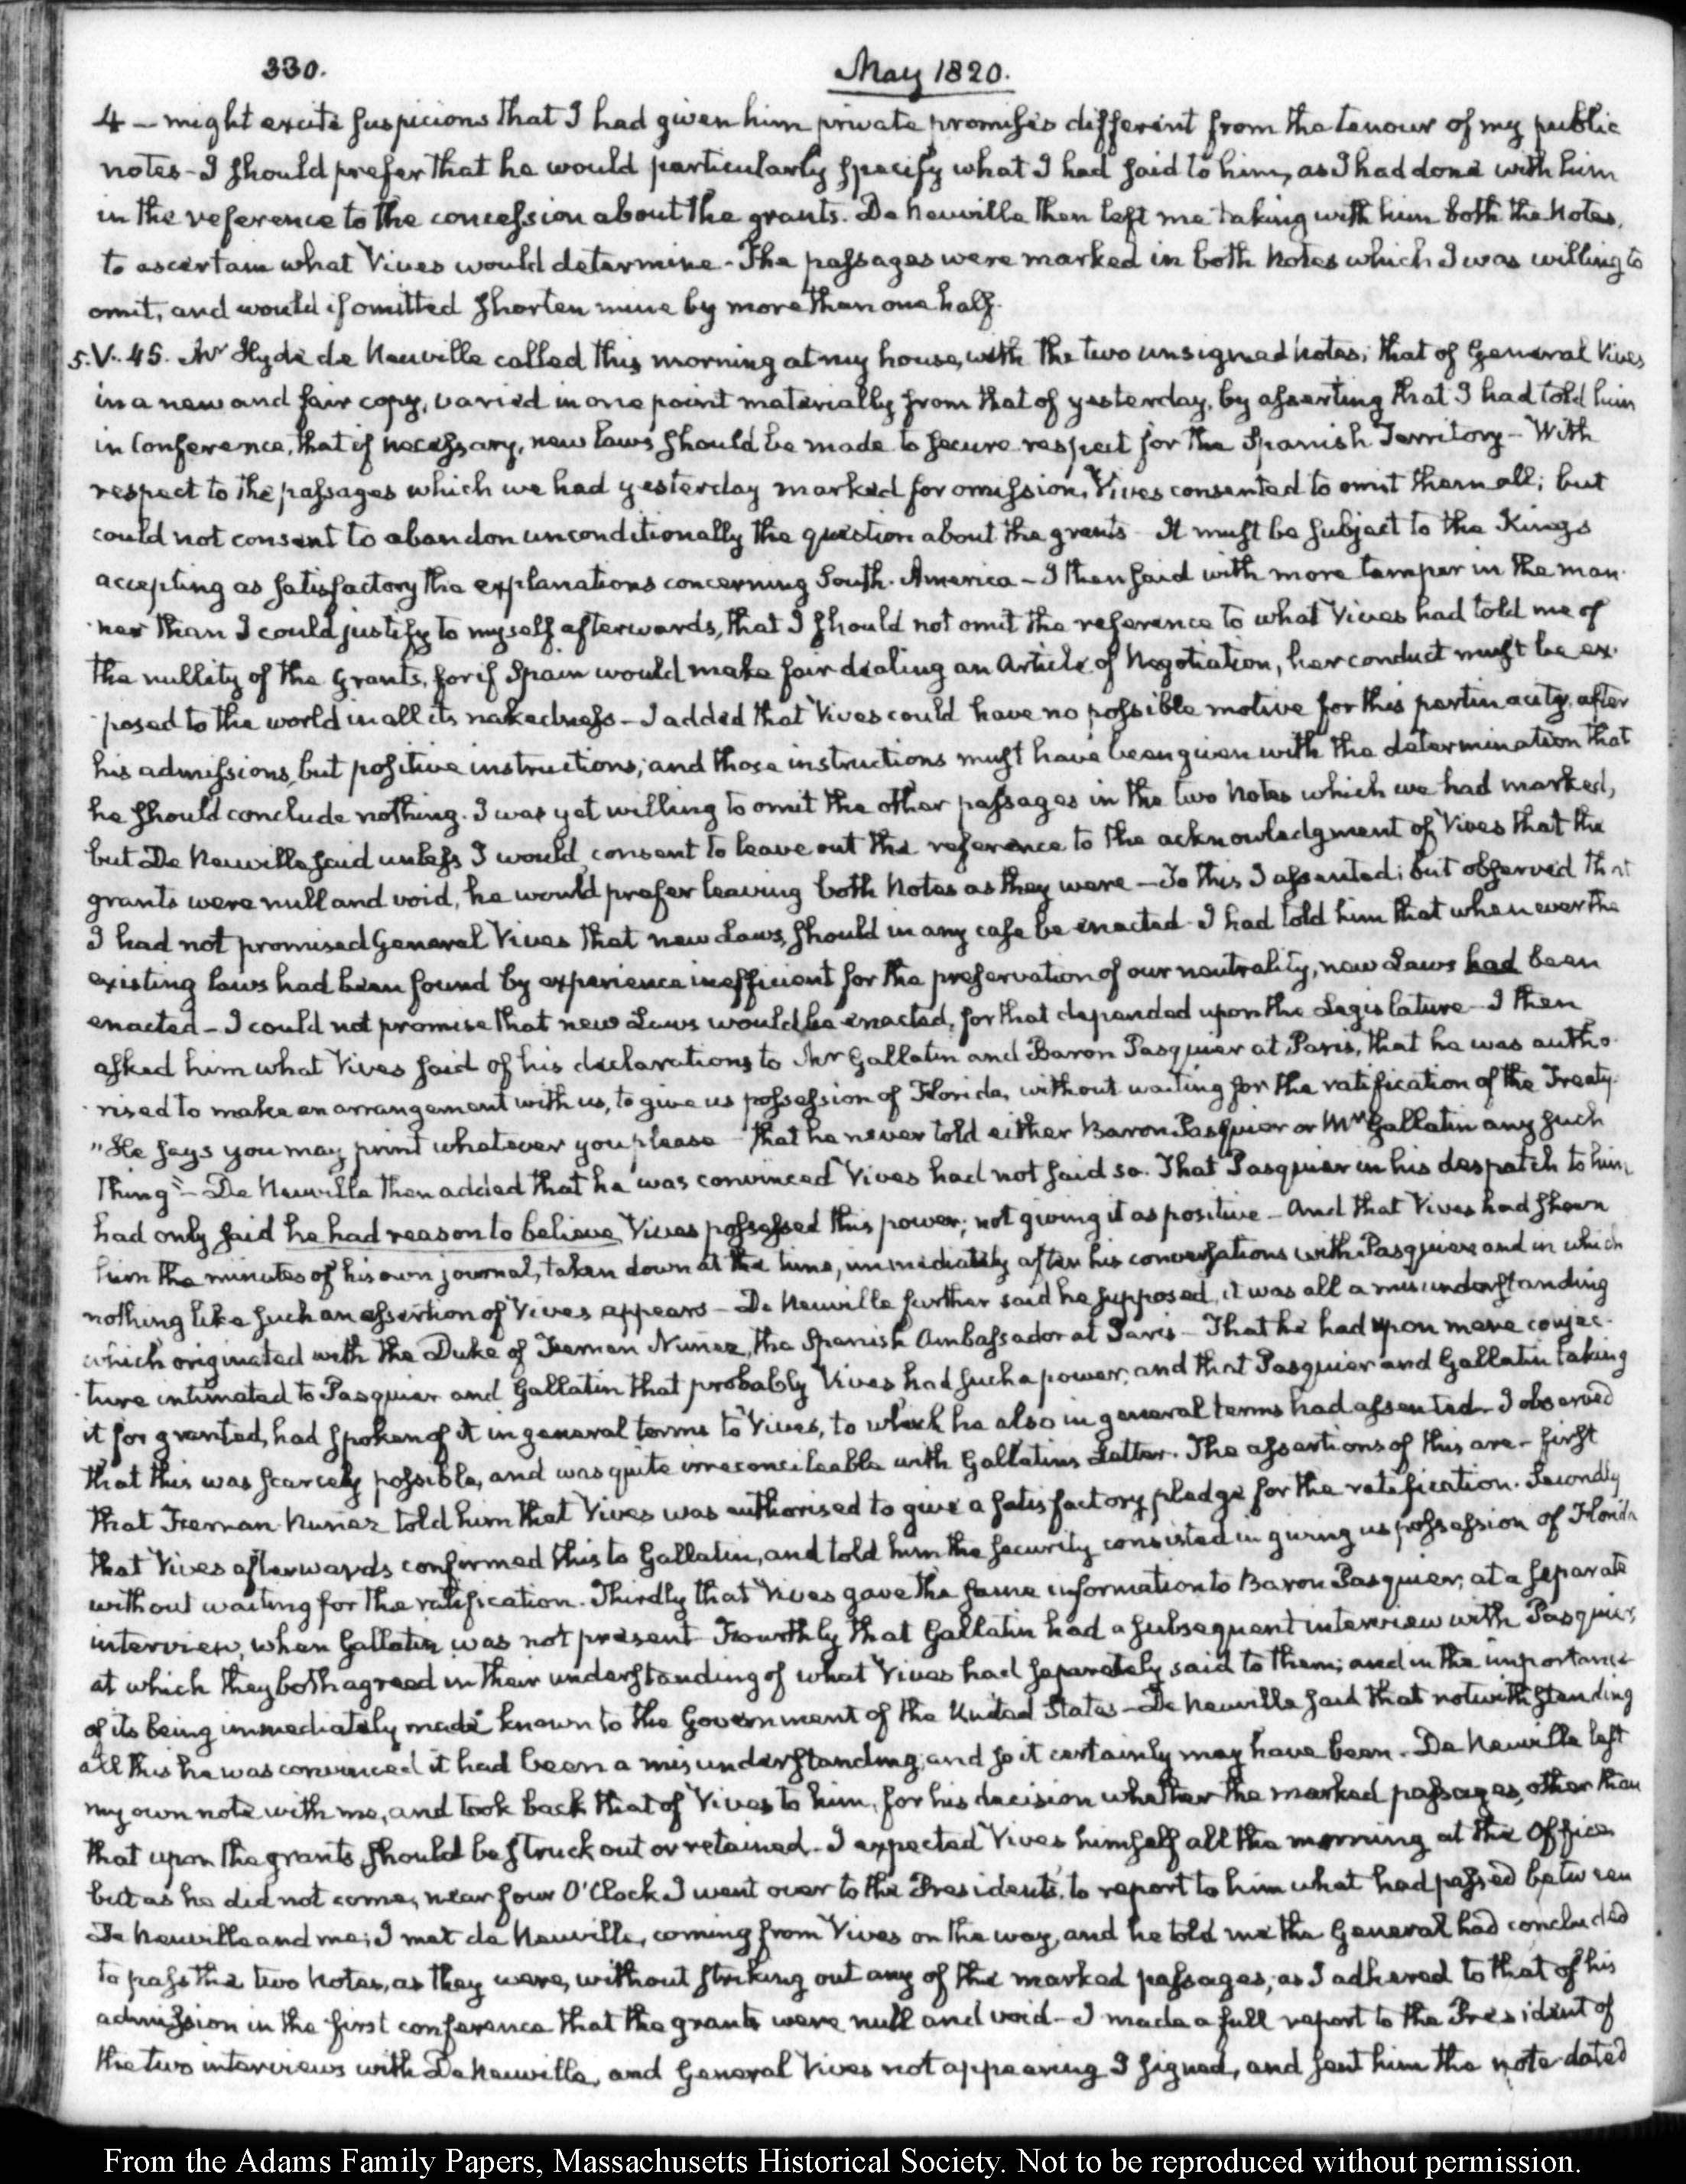 330.
May 1820.
4 — might excite suspicions that I had given him private promises different from the tenour of my public
notes - I should prefer that he would particularly specify what I had said to him, as I had done with him
in the reference to the concession about the grants. De Neuville then left me taking with him both the Notes,
to ascertain what Vives would determine - The passages were marked in both Notes which I was willing to
omit, and would if omitted shorten mine by more than one half.
5. V. 45. Mr Hyde de Neuville called this morning at my house, with the two unsigned Notes; that of General Vives
in a new and fair copy, varied in one point materially from that of yesterday, by asserting that I had told him
in Conference, that if necessary, new laws should be made to secure respect for the Spanish Territory - With
respect to the passages which we had yesterday marked for omission, Vives consented to omit them all; but
could not consent to abandon unconditionally the question about the grants - It must be subject to the Kings
accepting as satisfactory the explanations concerning South-America - I then said with more temper in the man-
ner than I could justify to myself afterwards, that I should not omit the reference to what Vives had told me of
the nullity of the Grants, for if Spain would make fair dealing an Article of Negotiation, her conduct must be ex-
posed to the world in all its nakedness - I added that Vives could have no possible motive for this pertinacity, after
his admissions, but positive instructions; and those instructions must have been given with the determination that
he should conclude nothing. I was yet willing to omit the other passages in the two Notes which we had marked,
but De Neuville said unless I would consent to leave out the reference to the acknowledgment of Vives that the
grants were null and void, he would prefer leaving both Notes as they were - To this I assented; but observed that
I had not promised General Vives that new Laws, should in any case be enacted - I had told him that whenever the
existing laws had been found by experience inefficient for the preservation of our neutrality, new Laws had been
enacted - I could not promise that new Laws would be enacted, for that depended upon the Legislature - I then
asked him what Vives said of his declarations to Mr Gallatin and Baron Pasquier at Paris, that he was autho-
rised to make an arrangement with us, to give us possession of Florida, without waiting for the ratification of the Treaty.
"He says you may print whatever you please - that he never told either Baron Pasquier or Mr Gallatin any such
thing" - De Neuville then added that he was convinced Vives had not said so. That Pasquier in his despatch to him,
had only said he had reason to believe Vives possessed this power; not giving it as positive - And that Vives had shewn
him the minutes of his own journal, taken down at the time, immediately after his conversations with Pasquier and in which
nothing like such an assertion of Vives appears - De Neuville further said he supposed, it was all a misunderstanding
which originated with the Duke of Fernan Nuñez, the Spanish Ambassador at Paris - That he had upon mere conjec-
ture intimated to Pasquier and Gallatin that probably Vives had such a power; and that Pasquier and Gallatin taking
it for granted, had spoken of it in general terms to Vives, to which he also in general terms had assented - I observed
that this was scarcely possible, and was quite irreconcileable with Gallatins Letter. The assertions of this are - first
that Fernan-Nuñez told him that Vives was authorised to give a satisfactory pledge for the ratification. Secondly
that Vives afterwards confirmed this to Gallatin, and told him the security consisted in giving us possession of Florida
without waiting for the ratification. Thirdly that Vives gave the same information to Baron Pasquier, at a separate
interview, when Gallatin was not present - Fourthly that Gallatin had a subsequent interview with Pasquier,
at which they both agreed in their understanding of what Vives had separately said to them; and in the importance
of its being immediately made known to the Government of the United States - De Neuville said that notwithstanding
all this he was convinced it had been a misunderstanding; and so it certainly may have been. De Neuville left
my own note with me, and took back that of Vives to him, for his decision whether the marked passages, other than
that upon the grants, should be struck out or retained - I expected Vives himself all the morning at the Office
but as he did not come, near four O'Clock I went over to the Presidents, to report to him what had passed between
De Neuville and me; I met de Neuville, coming from Vives on the way, and he told me the General had concluded
to pass the two Notes, as they were, without striking out any of the marked passages, as I adhered to that of his
admission in the first conference that the grants were null and void - I made a full report to the President of
the two interviews with De Neuville, and General Vives not appearing I signed, and sent him the note dated
From the Adams Family Papers, Massachusetts Historical Society. Not to be reproduced without permission.